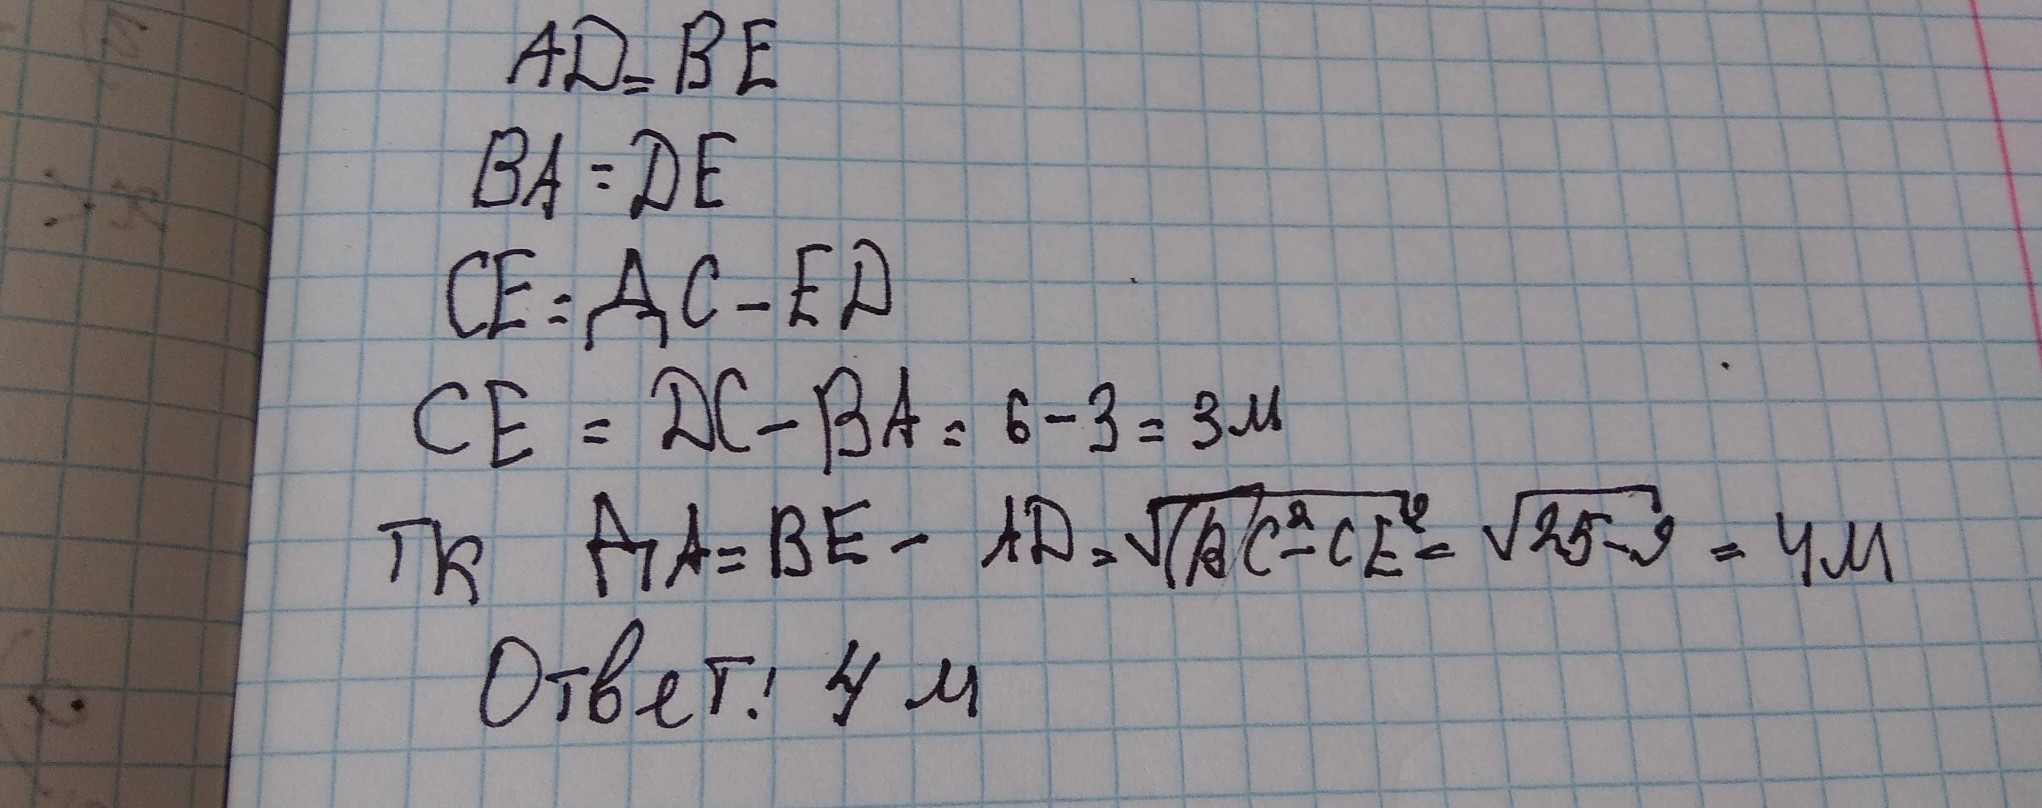 AD=BE
BA=DE
CE=ДC-ED
CE=DC-BA=6-3=3м
Тк ДA=BE-AD=√(BC²-CE²=√25-9=4м
Ответ: 4 м